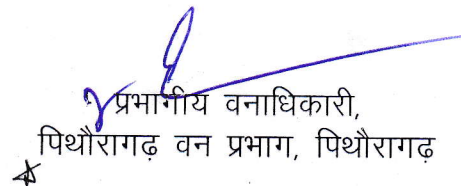 प्रभागीय वनाधिकारी,
पिथौरागढ़ वन प्रभाग, पिथौरागढ़